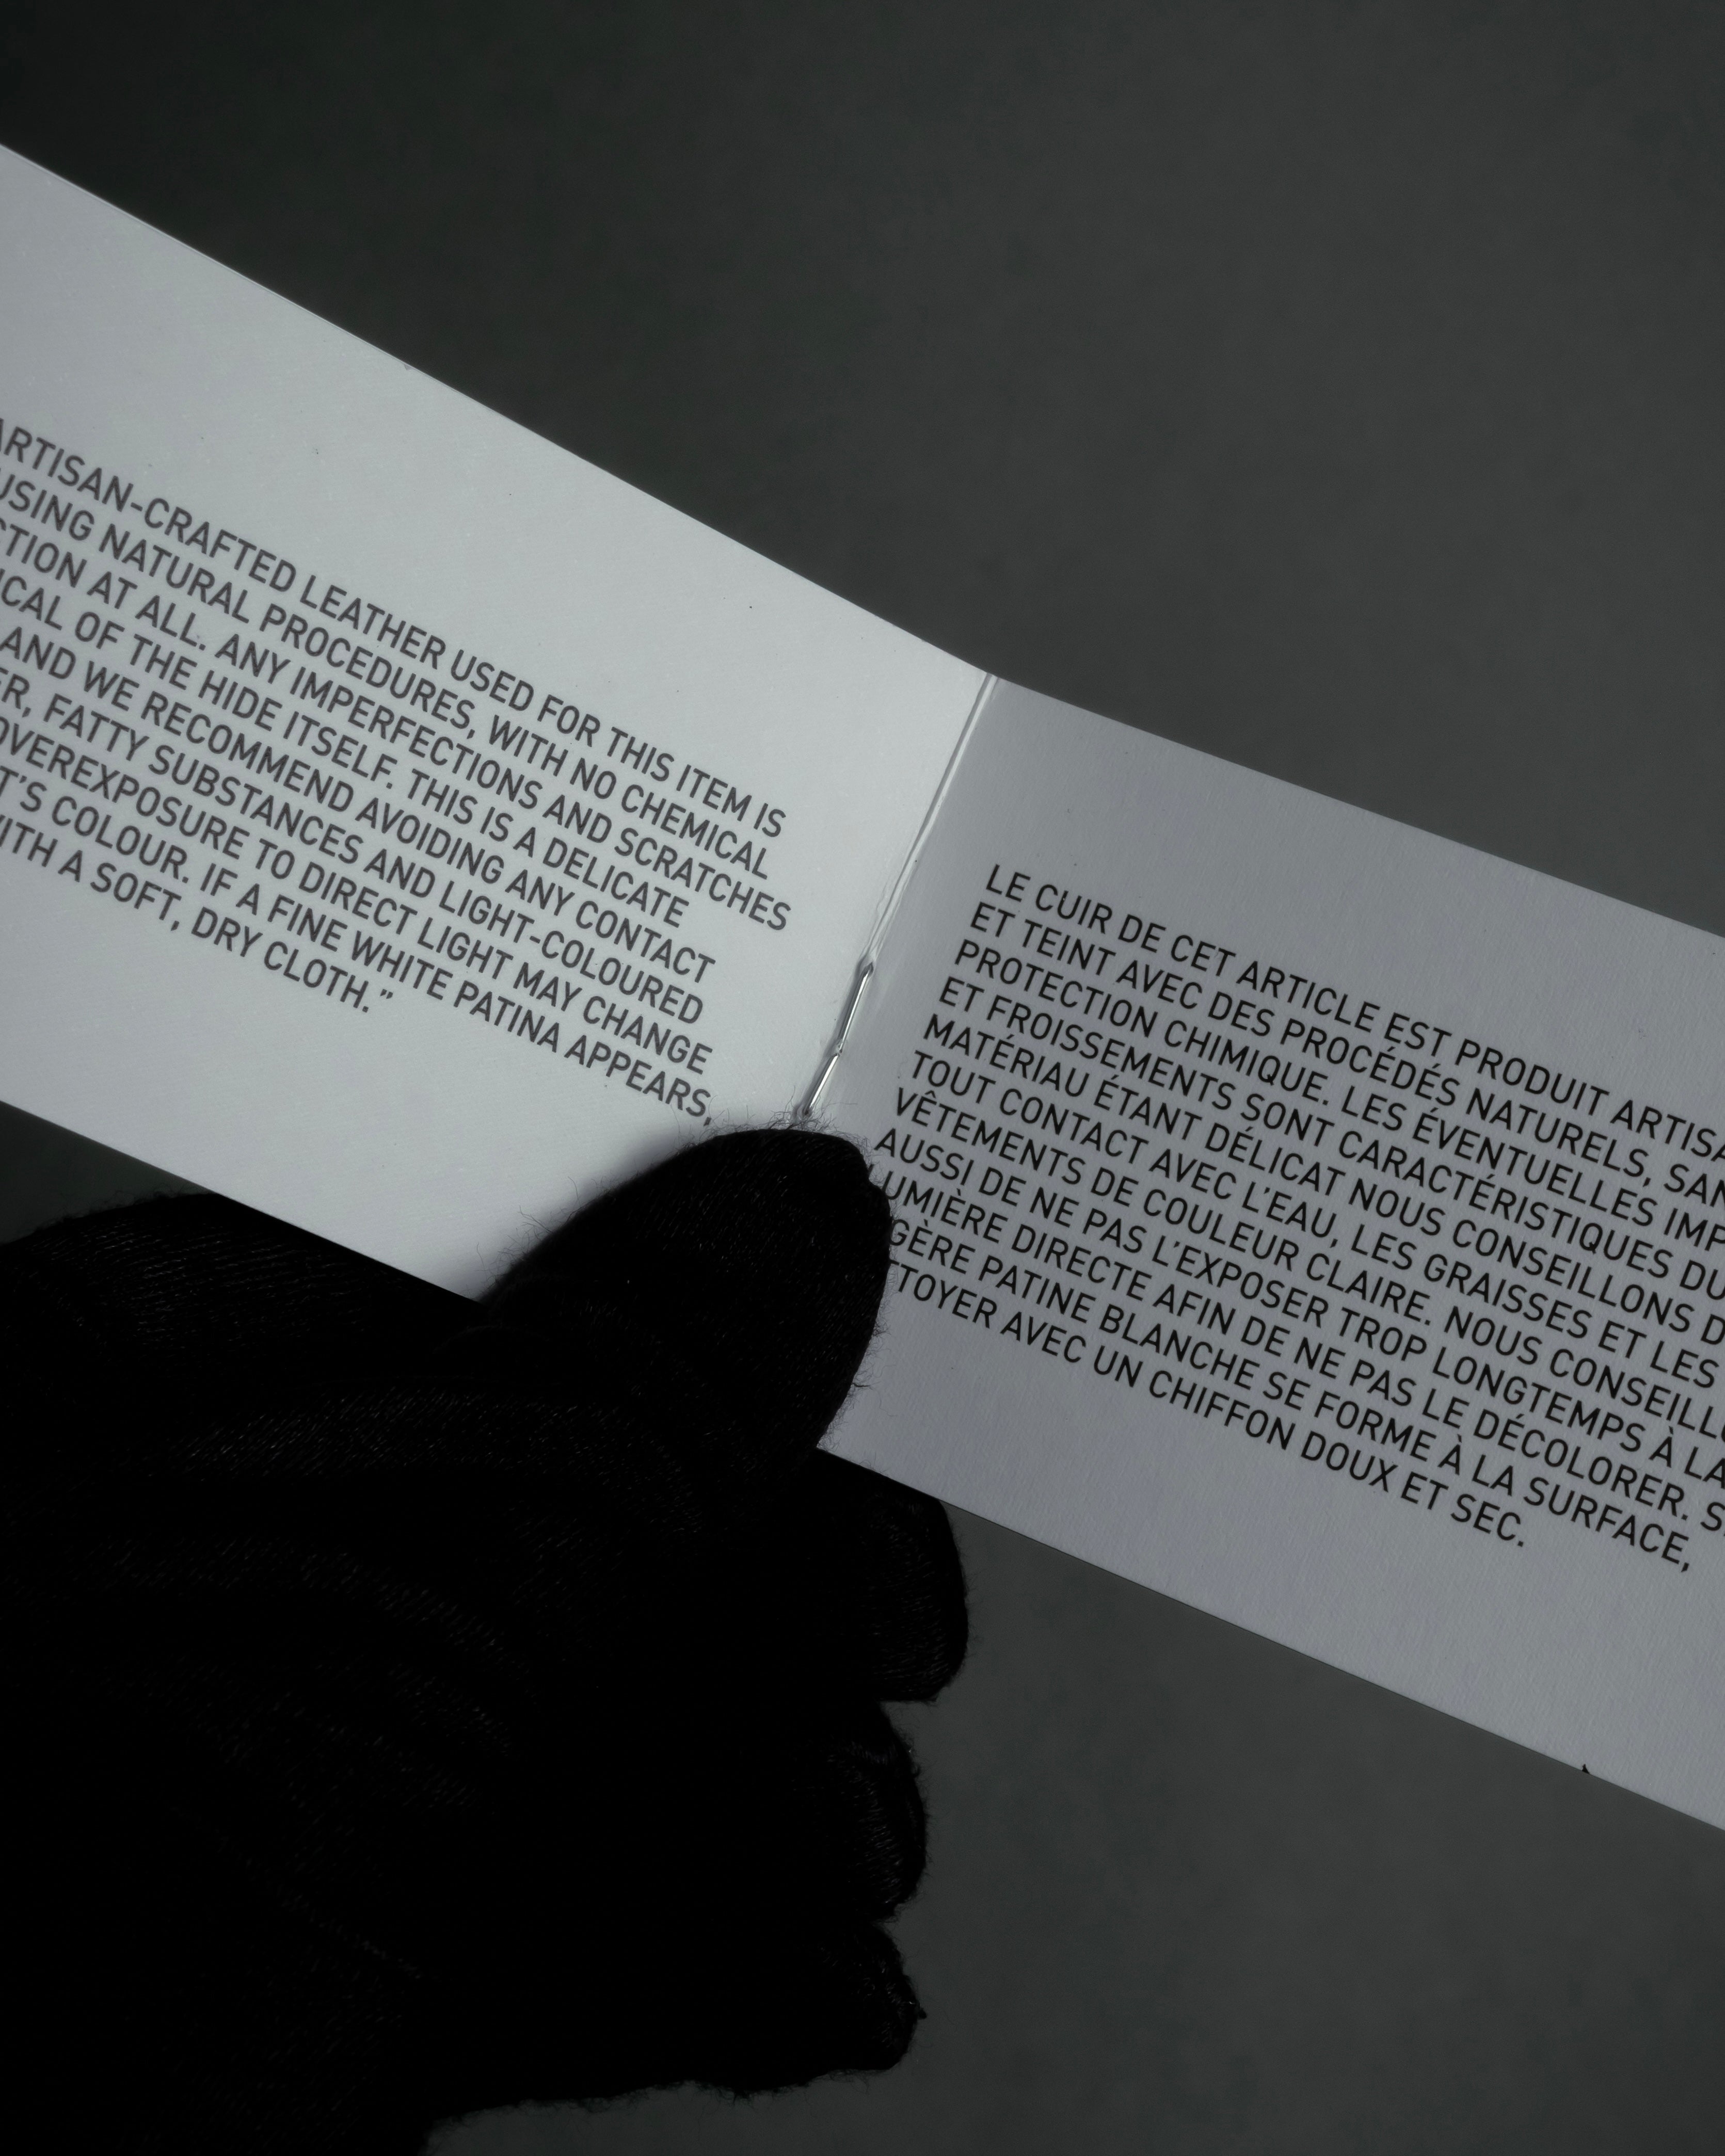 ARTISAN-CRAFTED LEATHER USED FOR THIS ITEM IS
USING NATURAL PROCEDURES, WITH NO CHEMICAL
CTION AT ALL. ANY IMPERFECTIONS AND SCRATCHES
ICAL OF THE HIDE ITSELF. THIS IS A DELICATE
AND WE RECOMMEND AVOIDING ANY CONTACT
ER, FATTY SUBSTANCES AND LIGHT-COLOURED
OVEREXPOSURE TO DIRECT LIGHT MAY CHANGE
T'S COLOUR. IF A FINE WHITE PATINA APPEARS,
WITH A SOFT, DRY CLOTH.”
LE CUIR DE CET ARTICLE EST PRODUIT ARTISA
ET TEINT AVEC DES PROCÉDÉS NATURELS, SAN
PROTECTION CHIMIQUE. LES ÉVENTUELLES IMP
ET FROISSEMENTS SONT CARACTÉRISTIQUES DU
MATÉRIAU ÉTANT DÉLICAT NOUS CONSEILLONS D
TOUT CONTACT AVEC L'EAU, LES GRAISSES ET LES
VÊTEMENTS DE COULEUR CLAIRE. NOUS CONSEILLO
AUSSI DE NE PAS L'EXPOSER TROP LONGTEMPS À LA
LUMIÈRE DIRECTE AFIN DE NE PAS LE DÉCOLORER. S
GÈRE PATINE BLANCHE SE FORME À LA SURFACE,
TOYER AVEC UN CHIFFON DOUX ET SEC.